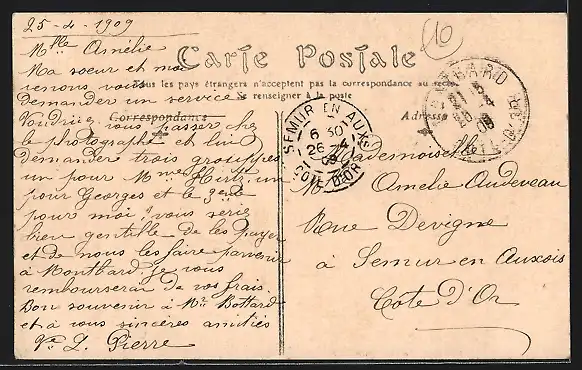 25-4-1909
Mlle Amélie
Carte Postale
Ma soeur et moi
Tous les pays étrangers n'acceptent pas la correspondance au
venons vous
Se renseigner à la poste
demander un service
Correspondance
Adresse
Voudriez vous passer chez
le photographe et lui
demander trois grouppes
un pour Mme Hertz, un
pour Georges et le 3ème
pour moi, vous serie
bien gentille de les payer
et de nous les faire parvenir
à Montbard. Je vous
rembourserai de vos frais.
Bon souvenir à Mr Bottard
et à vous sincères amitiés
Pierre
SEMUR EN AUXS
6 30
26-4
09
COTE D'OR
MONTBARD
COTE D'OR
Mademoiselle
Amelie Audeveau
Rue Devigne
à Semur en Auxois
Côte d'Or